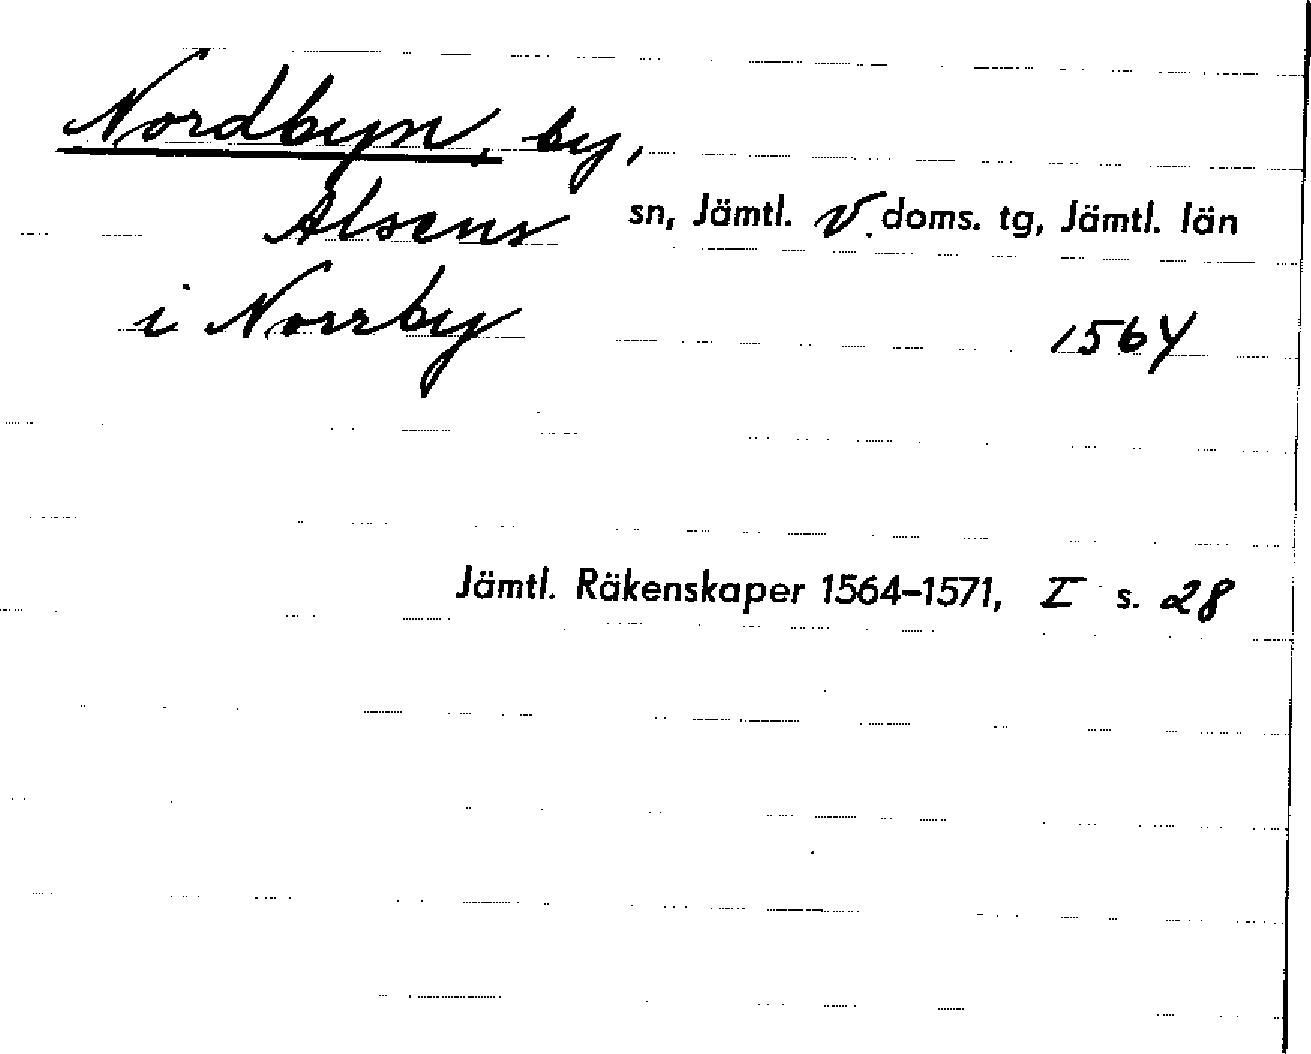 Nordbyn, by,
Alsens sn, Jämtl. V. doms. tg, Jämtl. län
i Norrby 1564
Jämtl. Räkenskaper 1564–1571, I s. 28